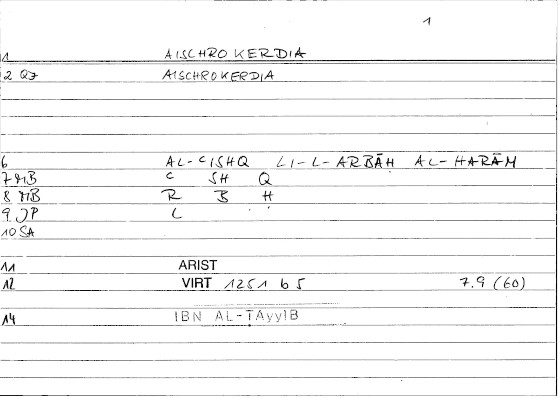 1
1 AISCHROKERDIA
2 QZ AISCHROKERDIA
6 AL-CISHQ LI-L-ARBĀḤ AL-ḤARĀM
7 MB C SH Q
8 MB R B Ḥ
9 JP L
10 SA
11 ARIST
12 VIRT 1251 b 5 7.9 (60)
14 IBN AL-ṬAyyIB